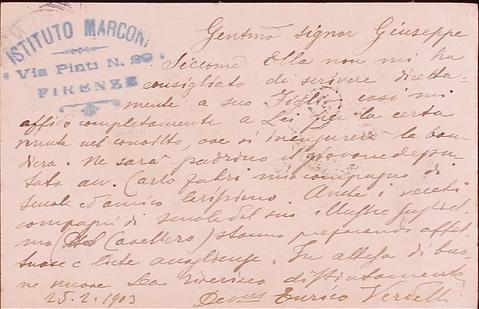 ISTITUTO MARCONI
Via Pinti N. 29
FIRENZE
Gentmo signor Giuseppe
Siccome Ella non mi ha
consigliato di scrivere diretta-
mente a suo Figlio così mi
affido completamente a Lei per la certa
nel convitto, ove si inaugurerà la ban-
diera. Ne sarà padrino il giovane depu-
tato av. Carlo mio compagno di
scuola ed amico carissimo. Anche i vecchi
compagni di scuola del suo illustre Gugliel-
mo (del Cavallero) stanno preparando affet-
tuose e liete accoglienze. In attesa di buo-
ne nuove La riverisco distintamente
25.2.1903 Devmo Enrico Verdelli